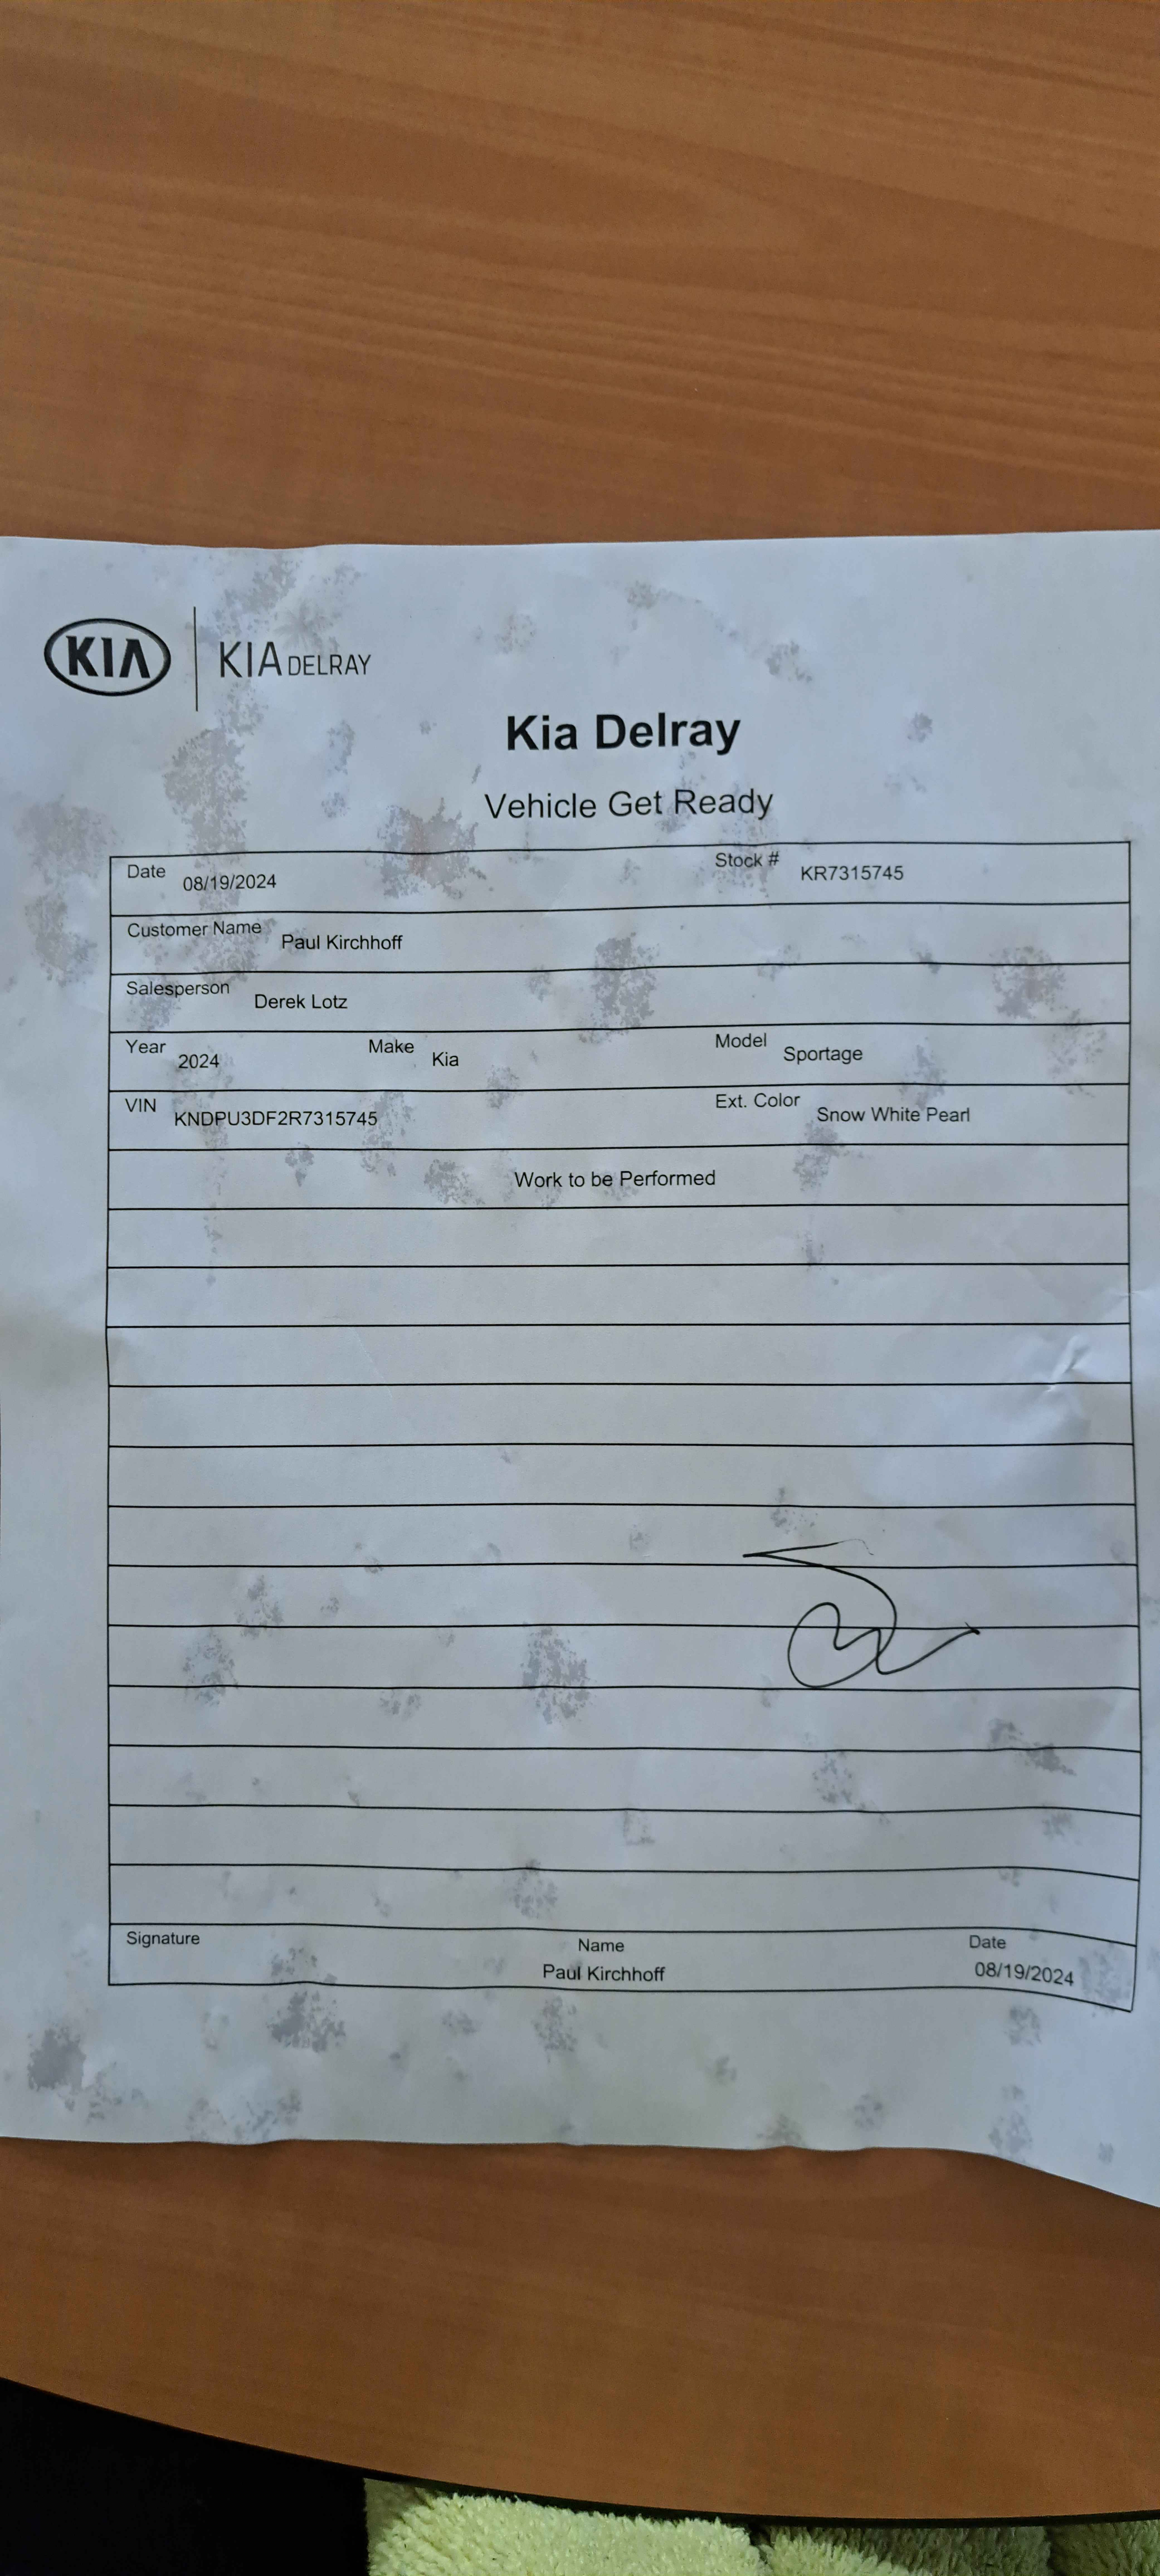 KIA KIA DELRAY
Kia Delray
Vehicle Get Ready
Date 08/19/2024 Stock # KR7315745
Customer Name Paul Kirchhoff
Salesperson Derek Lotz
Year 2024 Make Kia Model Sportage
VIN KNDPU3DF2R7315745 Ext. Color Snow White Pearl
Work to be Performed
Signature Name Date
Paul Kirchhoff 08/19/2024